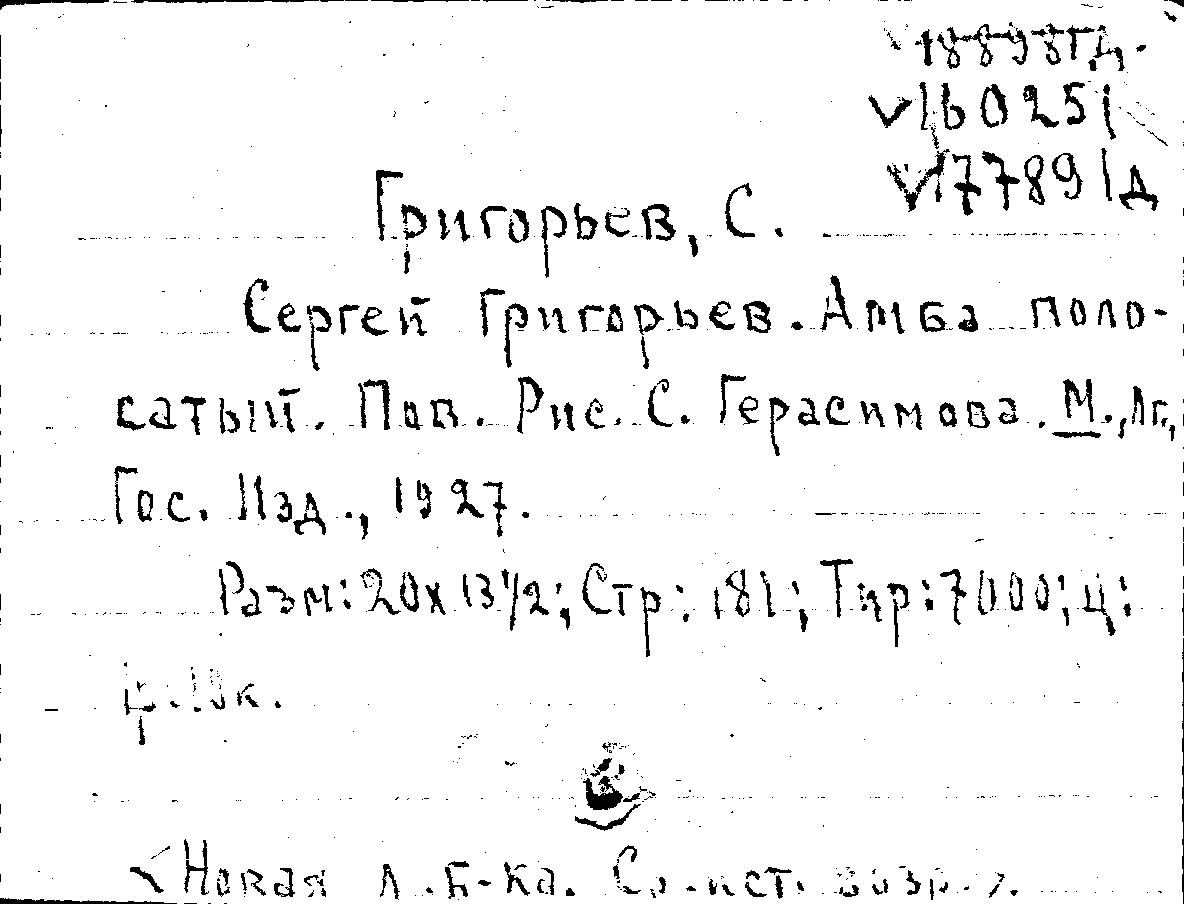 188981д.
V160251
V177891д
Григорьев, С.
Сергей Григорьев. Амба поло-
сатый. Пов. Рис. С. Герасимова. М., Лг.,
Гос. Изд., 1927.
Разм: 20х13 1/2; Стр: 181; Тир: 7000; Ц:
1р. 10к.
Новая д. Б-ка. Ср. и ст. возр.